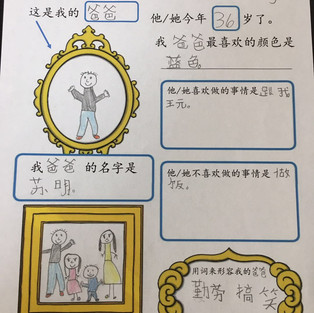 这是我的 爸爸
他/她今年 36 岁了。
我 爸爸 最喜欢的颜色是
蓝色。
他/她喜欢做的事情是 跟 我
玉元。
我 爸爸 的名字是
苏 明。
他/她不喜欢做的事情是 做
饭。
用词来形容我的 爸爸
勤劳 搞 笑